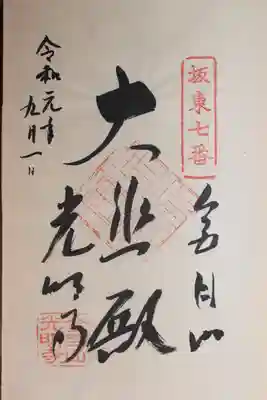 坂東七番
金目山
大悲殿
光明寺
令和元年
九月一日
金目山
光明寺